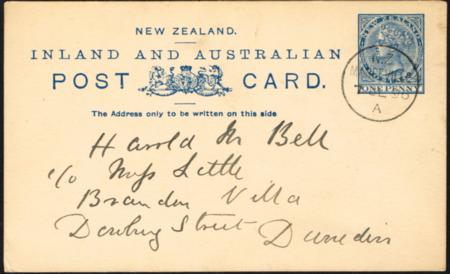 NEW ZEALAND.
INLAND AND AUSTRALIAN
POST CARD.
The Address only to be written on this side
NEW ZEALAND
ONE PENNY
N.Z
A
Harold M Bell
c/o Miss Little
Brandon Villa
Street Dunedin